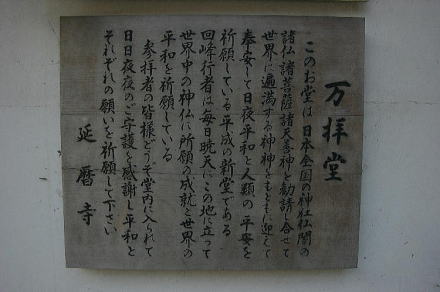 万拝堂
このお堂は日本全国の神社仏閣の
諸仏諸菩薩諸天善神を勧請し合せて
世界に遍満する神神をもともに迎えて
奉安して日夜平和と人類の平安を
祈願している平成の新堂である
回峰行者は毎日暁天にこの地に立って
世界中の神仏に所願の成就と世界の
平和を祈願している
参拝者の皆様どうぞ堂内に入られて
日日夜夜のご守護を感謝し平和と
それぞれの願いを祈願して下さい
延暦寺